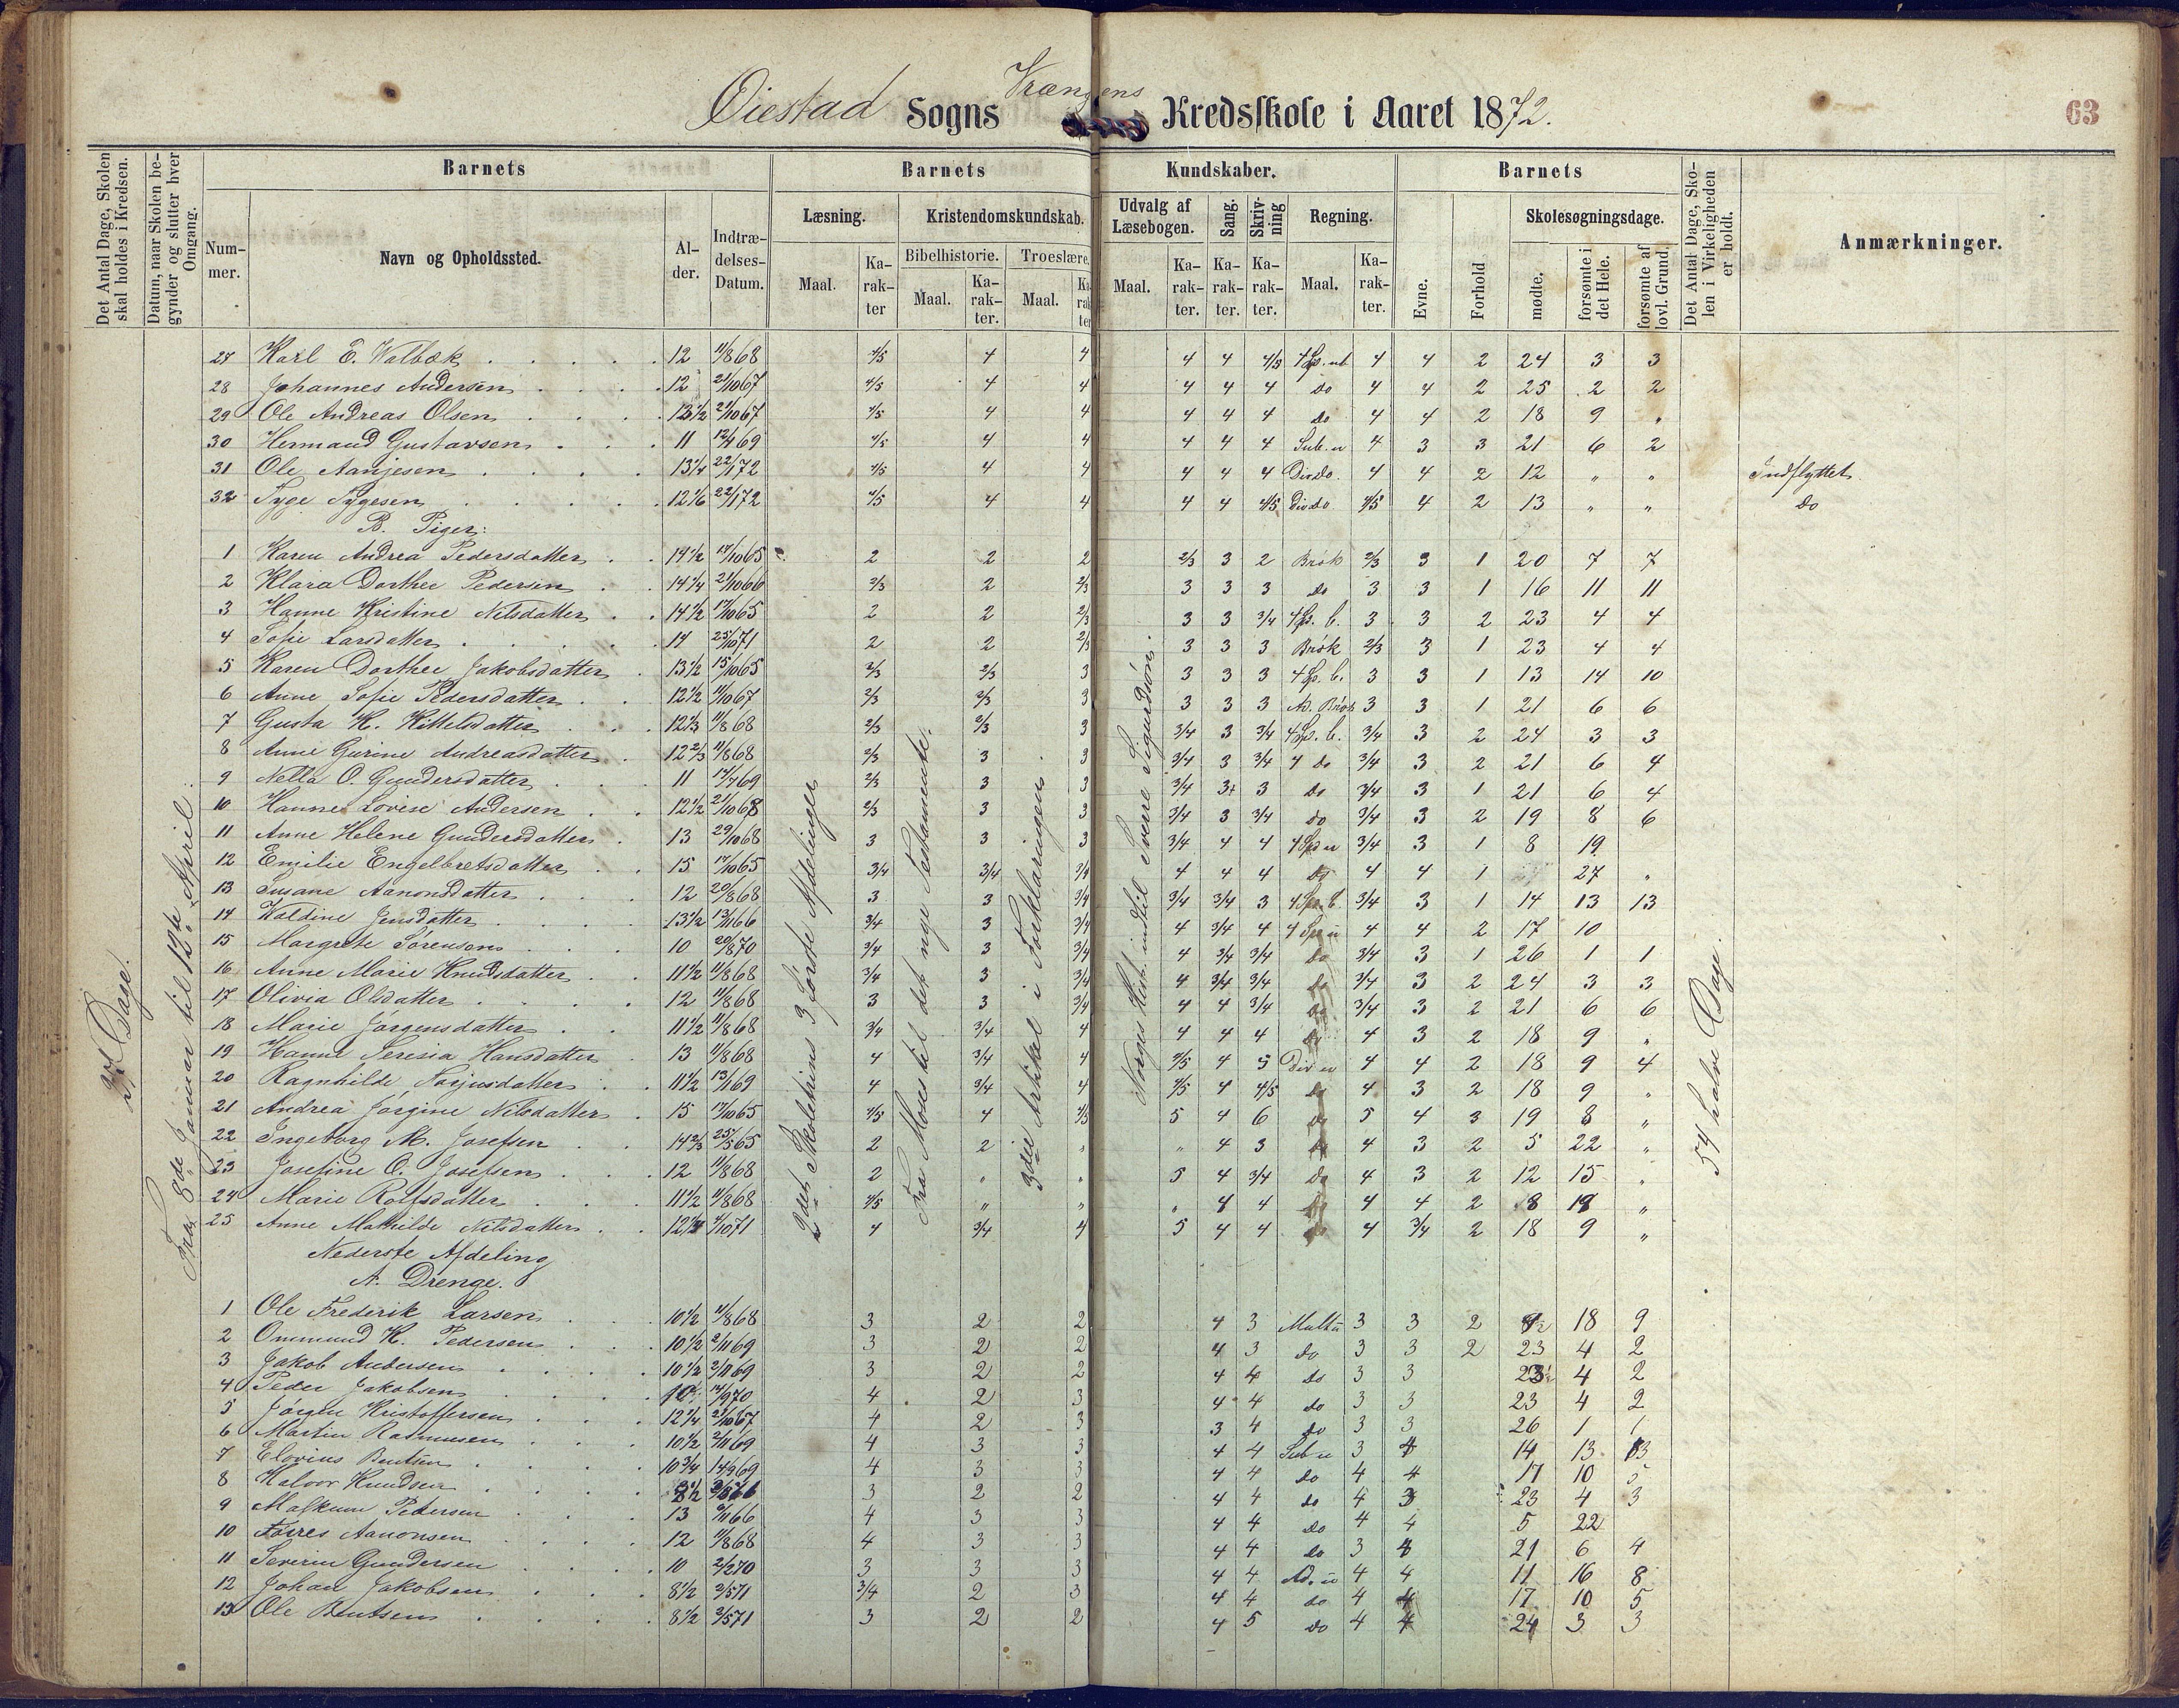 Øiestad Sogns Vrængens Kredsskole i Aaret 1872.
63
Det Antal Dage, Skolen skal holdes i Kredsen.
Datum, naar Skolen begynder og slutter hver Omgang.
Barnets
Nummer.
Navn og Opholdssted.
Alder.
Indtrædelses-Datum.
Barnets
Læsning.
Maal.
Karakter
Kristendomskundskab.
Bibelhistorie.
Maal.
Karakter.
Troeslære.
Maal.
Kundskaber.
Udvalg af Læsebogen.
Maal.
Karakter.
Sang.
Karakter.
Skrivning
Karakter.
Regning.
Maal.
Karakter.
Barnets
Evne.
Forhold
Skolesøgningsdage.
mødte.
forsømte i det Hele.
forsømte af lovl. Grund.
Det Antal Dage, Skolen i Virkeligheden er holdt.
Anmærkninger.
27 Dage.
Fra 8de Januar til 12te April.
2det Skoletrins 3 første Afdelinger
Fra Moses til det nye Testamente.
3die Artikel i Forklaringen.
Norges Hist. indtil Sverre Sigurdsøn.
54 halve Dage.
27 Karl E. Valbæk 12 11/8 68 4/5 4 4 4 4 4/5 4 Sp. ub 4 4 2 24 3 3
28 Johannes Andersen 12 21/10 67 4/5 4 4 4 4 4 do 4 4 2 25 2 2
29 Ole Andreas Olsen 13 1/2 21/10 67 4/5 4 4 4 4 4 do 4 4 2 18 9 "
30 Hermand Gustavsen 11 12/4 69 4/5 4 4 4 4 4 Sub. u 4 3 3 21 6 2
31 Ole Aanjesen 13 1/4 22/1 72 4/5 4 4 4 4 4 Div do. 4 4 2 12 " " Indflyttet.
32 Tyge Tygesen 12 1/6 22/1 72 4/5 4 4 4 4 4/5 Div do 4/5 4 2 13 " " do
B. Piger:
1 Karen Andrea Pedersdatter 14 1/2 17/10 65 2 2 2 2/3 3 2 Brøk 2/3 3 1 20 7 7
2 Klara Dorthee Pedersen 14 1/4 21/10 66 2/3 2 2/3 3 3 3 do 3 3 1 16 11 11
3 Hanne Kristine Nilsdatter 14 1/2 17/10 65 2 2 2/3 3 3 3/4 4 Sp. b. 3 3 2 23 4 4
4 Sofie Larsdatter 14 25/10 71 2 2 2/3 3 3 3 Brøk 2/3 3 1 23 4 4
5 Karen Dorthee Jakobsdatter 13 1/2 15/10 65 2/3 2/3 3 3 3 3 4 Sp. b. 3 3 1 13 14 10
6 Anne Sofie Pedersdatter 12 1/2 11/10 67 2/3 2/3 3 3 3 3 Ad. Brøk 3 3 1 21 6 6
7 Gusta K. Kittelsdatter 12 1/3 11/8 68 2/3 2/3 3 3/4 3 3/4 4 Sp. b. 3/4 3 2 24 3 3
8 Anne Gurine Andreasdatter 12 2/3 11/8 68 2/3 3 3 3/4 3 3/4 4 do 3/4 3 2 21 6 4
9 Nella O. Gundersdatter 11 12/4 69 2/3 3 3 3/4 3+ 3 do 3/4 3 1 21 6 4
10 Hanne Lovise Andersen 12 1/2 21/10 68 2/3 3 3 3/4 3 3/4 do 3/4 3 2 19 8 6
11 Anne Helene Gundersdatter 13 29/10 68 3 3 3 3/4 4 4 4 Sp u 3/4 3 1 8 19
12 Emilie Engelbretsdatter 15 17/10 65 3/4 3/4 3/4 4 4 4 do 4 4 1 27 "
13 Susane Aanonsdatter 12 20/8 68 3 3 3/4 3/4 3/4 3 4 Sp. b. 3/4 3 1 14 13 13
14 Valdine Jensdatter 13 1/2 13/11 66 3/4 3 3/4 4 3/4 4 4 Sp u 4 4 2 17 10
15 Margrete Sørensen 10 20/8 70 3/4 3 3/4 4 3/4 3/4 do 3/4 3 1 26 1 1
16 Anne Marie Knudsdatter 11 1/2 11/8 68 3/4 3 3/4 4 3/4 3/4 do 3/4 3 2 24 3 3
17 Olivia Olsdatter 12 11/8 68 3 3 3/4 4 4 3/4 do 3/4 3 2 21 6 6
18 Marie Jørgensdatter 11 1/2 11/8 68 3/4 3/4 4 4 4 4 do 4 3 2 18 9 "
19 Hanne Teresia Hansdatter 13 11/8 68 4 3/4 4 4/5 4 5 Div u 4 4 2 18 9 4
20 Ragnhilde Narjusdatter 11 1/2 13/1 69 4 3/4 4 4/5 4 4/5 do 4 3 2 18 9 "
21 Andrea Jørgine Nilsdatter 15 17/10 65 4/5 4 4/5 5 4 6 do 5 4 3 19 8 "
22 Ingeborg M. Josefsen 14 2/3 25/5 65 2 2 " " 4 3 do 4 3 2 5 22 "
23 Josefine O. Josefsen 12 11/8 68 2 " " 5 4 3/4 do 4 3 2 12 15 "
24 Marie Rolfsdatter 11 1/2 11/8 68 4/5 " " " 4 4 do 4 4 2 8 19 "
25 Anne Mathilde Nilsdatter 12 1/4 4/10 71 4 3/4 4 5 4 4 do 4 3/4 2 18 9 "
Nederste Afdeling
A. Drenge.
1 Ole Frederik Larsen 10 1/2 11/8 68 3 2 2 4 3 Mult u 3 3 2 18 9
2 Ommund K. Pedersen 10 1/2 2/11 69 3 2 2 4 3 do 3 3 2 23 4 2
3 Jakob Andersen 10 1/2 2/11 69 3 2 2 4 4 do 3 3 23 4 2
4 Peder Jakobsen 10 14/9 70 4 2 3 4 4 do 3 3 23 4 2
5 Jørgen Kristoffersen 12 1/4 21/10 67 4 2 3 3 4 do 3 3 26 1 1
6 Martin Rasmussen 10 1/2 2/11 69 4 3 3 4 4 Sub u 3 4 14 13 13
7 Elovius Bentsen 10 3/4 14/9 69 4 3 3 4 4 do 4 4 17 10 5
8 Halvor Knudsen 3 2 2 4 4 do 4 3 23 4 3
9 Malkum Petersen 13 6/11 66 4 3 3 4 4 do 4 4 5 22
10 Torres Aanonsen 12 11/8 68 4 3 3 4 4 do 3 4 21 6 4
11 Severin Gundersen 10 2/2 70 3 3 3 4 4 Ad. u 4 4 11 16 8
12 Johan Jakobsen 8 1/2 2/5 71 3/4 2 3 4 4 do 4 4 17 10 5
13 Ole Bentsen 8 1/2 2/5 71 3 2 2 4 5 do 4 4 24 3 3